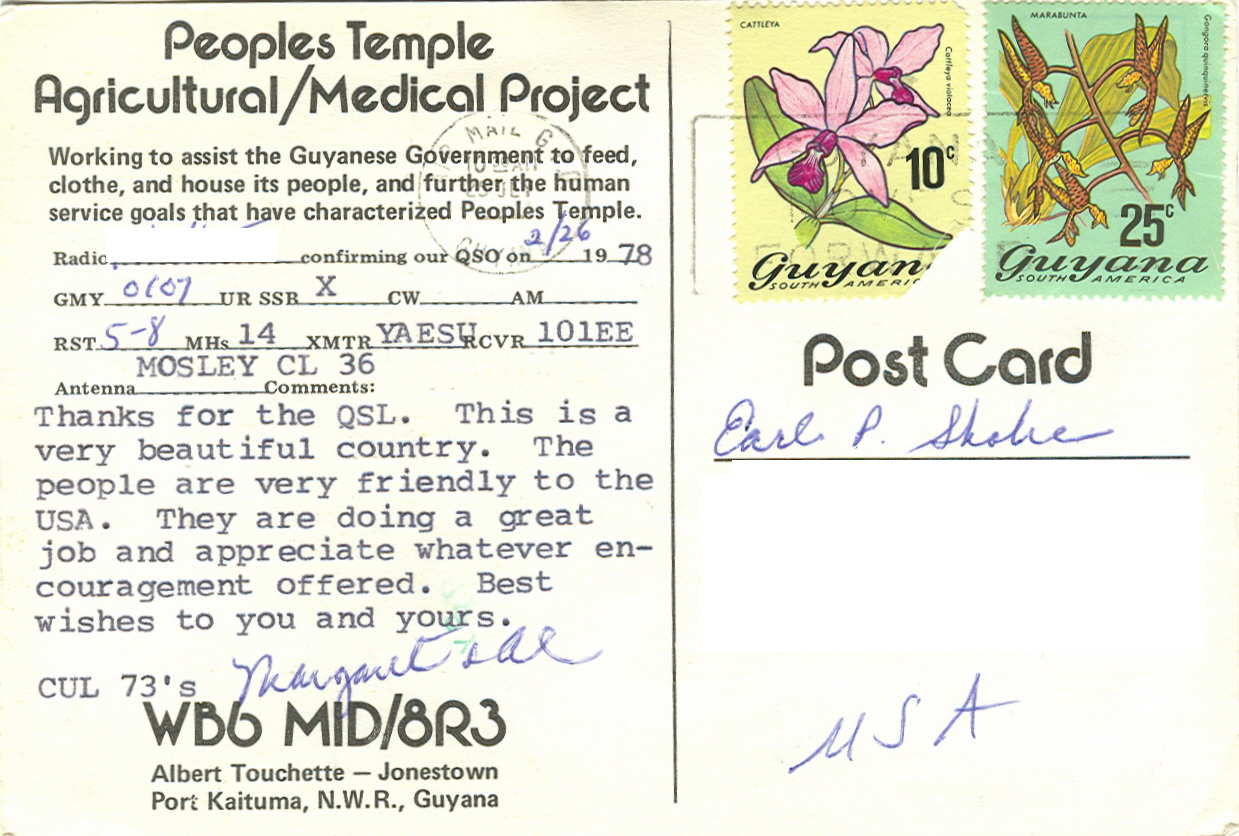 Peoples Temple
Agricultural/Medical Project
Working to assist the Guyanese Government to feed,
clothe, and house its people, and further the human
service goals that have characterized Peoples Temple.
Radio confirming our QSO on 2/26 1978
GMY 0107 UR SSB X CW AM
RST 5-8 MHs 14 XMTR YAESU RCVR 101EE
MOSLEY CL 36
Antenna Comments:
Thanks for the QSL. This is a
very beautiful country. The
people are very friendly to the
USA. They are doing a great
job and appreciate whatever en-
couragement offered. Best
wishes to you and yours.
CUL 73's Margaret
WB6 MID/8R3
Albert Touchette – Jonestown
Port Kaituma, N.W.R., Guyana
CATTLEYA
Cattleya violacea
10c
Guyan
SOUTH AMERIC
MARABUNTA
Gongora quinquenervis
25c
Guyana
SOUTH AMERICA
MAIL
Post Card
Earl P.
USA